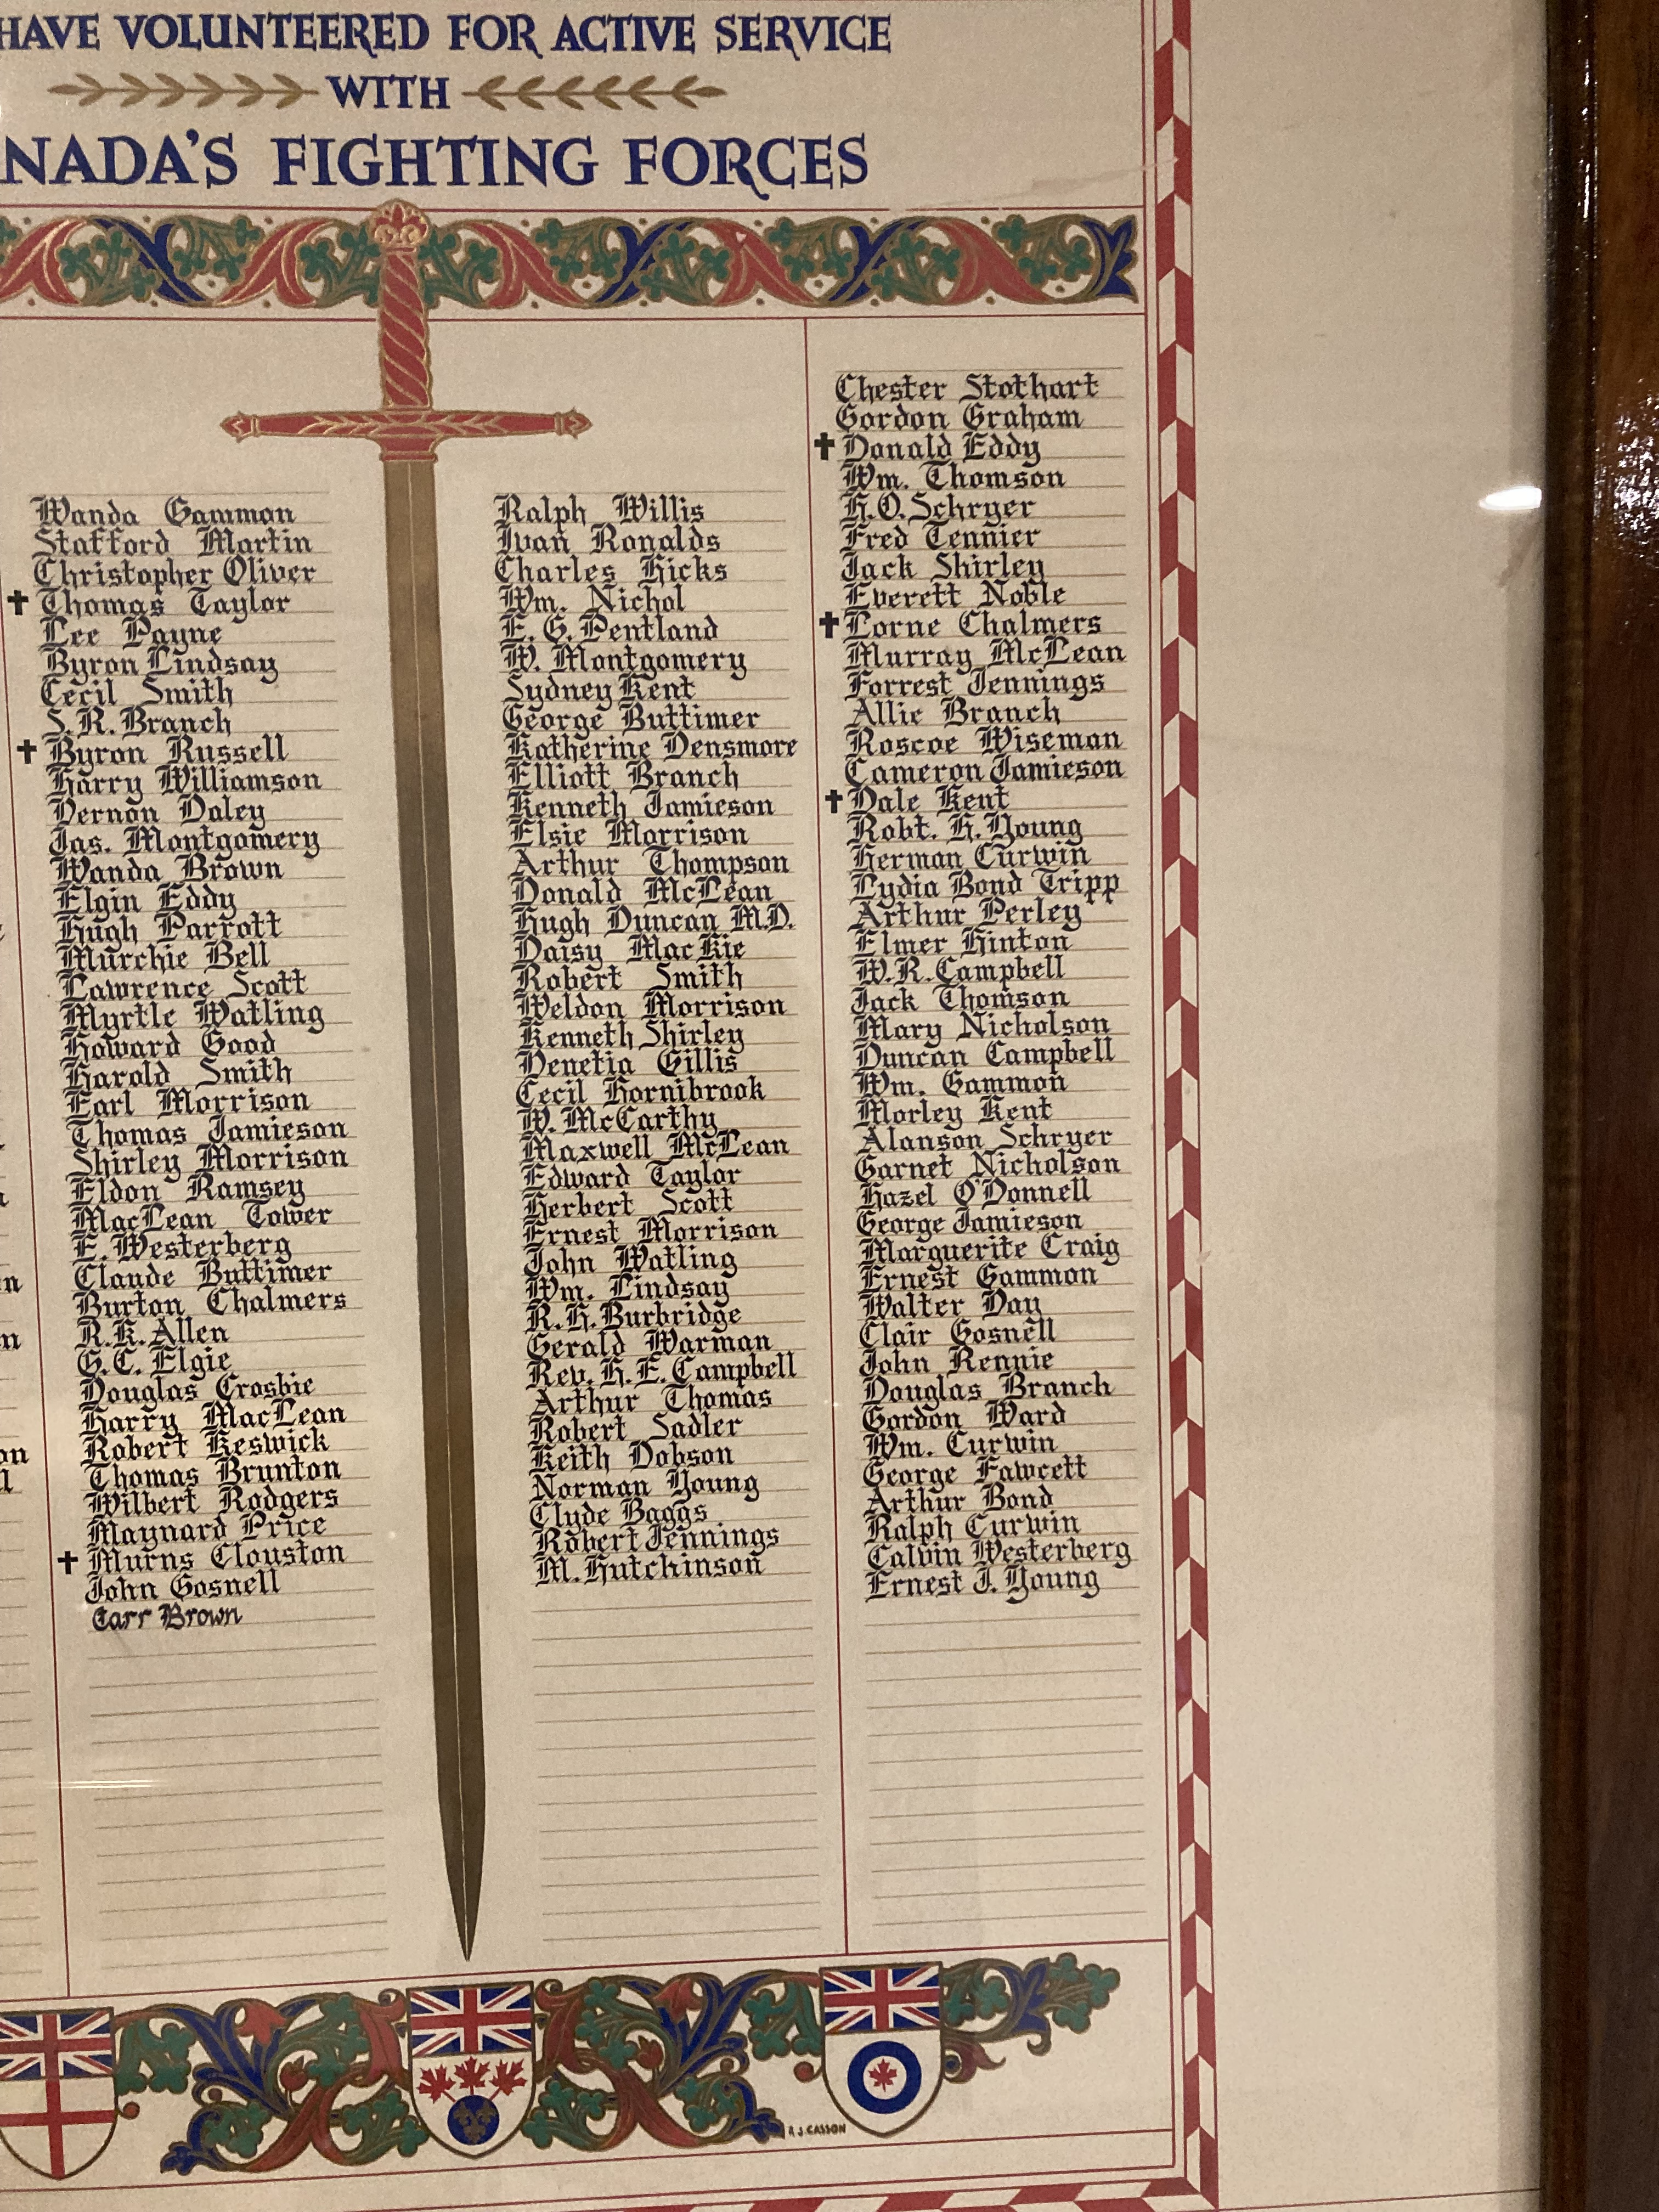 HAVE VOLUNTEERED FOR ACTIVE SERVICE
WITH
NADA'S FIGHTING FORCES
Wanda Gammon
Stafford Martin
Christopher Oliver
✝ Thomas Taylor
Lee Payne
Byron Lindsay
Cecil Smith
S.R. Branch
✝ Byron Russell
Harry Williamson
Vernon Daley
Jas. Montgomery
Wanda Brown
Elgin Eddy
Hugh Parrott
Murchie Bell
Lawrence Scott
Myrtle Watling
Howard Good
Harold Smith
Earl Morrison
Thomas Jamieson
Shirley Morrison
Eldon Ramsey
MacLean Tower
E. Westerberg
Claude Buttimer
Burton Chalmers
R.K. Allen
G.C. Elgie
Douglas Crosbie
Harry MacLean
Robert Keswick
Thomas Brunton
Wilbert Rodgers
Maynard Price
✝ Murns Clouston
John Gosnell
Carr Brown
Ralph Willis
Ivan Ronalds
Charles Hicks
Wm. Nichol
E. G. Pentland
W. Montgomery
Sydney Kent
George Buttimer
Katherine Densmore
Elliott Branch
Kenneth Jamieson
Elsie Morrison
Arthur Thompson
Donald McLean
Hugh Duncan M.D.
Daisy MacKie
Robert Smith
Weldon Morrison
Kenneth Shirley
Venetia Gillis
Cecil Hornibrook
W. McCarthy
Maxwell McLean
Edward Taylor
Herbert Scott
Ernest Morrison
John Watling
Wm. Lindsay
R.H. Burbridge
Gerald Warman
Rev. H. E. Campbell
Arthur Thomas
Robert Sadler
Keith Dobson
Norman Young
Clyde Baggs
Robert Jennings
M. Hutchinson
Chester Stothart
Gordon Graham
✝ Donald Eddy
Wm. Thomson
H.O. Schryer
Fred Tennier
Jack Shirley
Everett Noble
✝ Lorne Chalmers
Murray McLean
Forrest Jennings
Allie Branch
Roscoe Wiseman
Cameron Jamieson
✝ Dale Kent
Robt. H. Young
Herman Curwin
Lydia Bond Tripp
Arthur Perley
Elmer Hinton
W.R. Campbell
Jack Thomson
Mary Nicholson
Duncan Campbell
Wm. Gammon
Morley Kent
Alanson Schryer
Garnet Nicholson
Hazel O'Donnell
George Jamieson
Marguerite Craig
Ernest Gammon
Walter Day
Clair Gosnell
John Rennie
Douglas Branch
Gordon Ward
Wm. Curwin
George Fawcett
Arthur Bond
Ralph Curwin
Calvin Westerberg
Ernest J. Young
R.J. CASSON